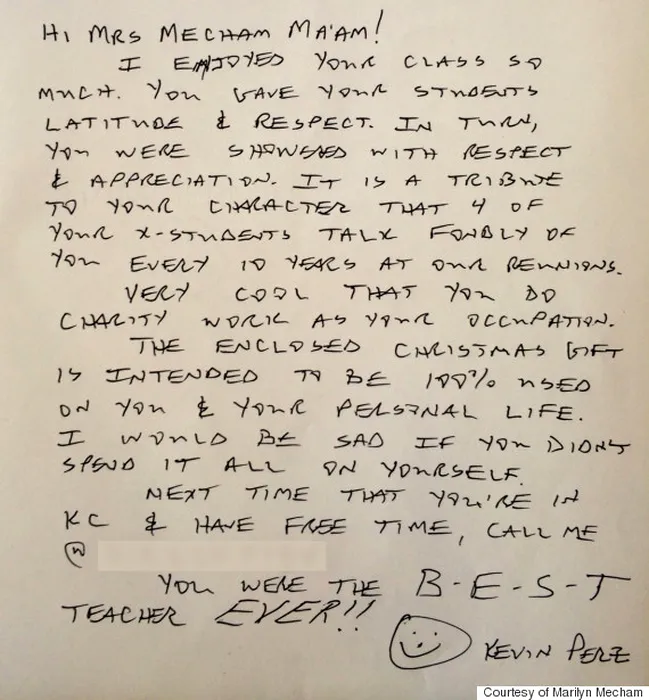 HI MRS MECHAM MA'AM!
I ENJOYED YOUR CLASS SO
MUCH. YOU GAVE YOUR STUDENTS
LATITUDE & RESPECT. IN TURN,
YOU WERE SHOWERED WITH RESPECT
& APPRECIATION. IT IS A TRIBUTE
TO YOUR CHARACTER THAT 4 OF
YOUR X-STUDENTS TALK FONDLY OF
YOU EVERY 10 YEARS AT OUR REUNIONS.
VERY COOL THAT YOU DO
CHARITY WORK AS YOUR OCCUPATION.
THE ENCLOSED CHRISTMAS GIFT
IS INTENDED TO BE 100% USED
ON YOU & YOUR PERSONAL LIFE.
I WOULD BE SAD IF YOU DIDNT
SPEND IT ALL ON YOURSELF.
NEXT TIME THAT YOU'RE IN
KC & HAVE FREE TIME, CALL ME
@
YOU WERE THE B-E-S-T
TEACHER EVER!!
KEVIN PERZ
Courtesy of Marilyn Mecham